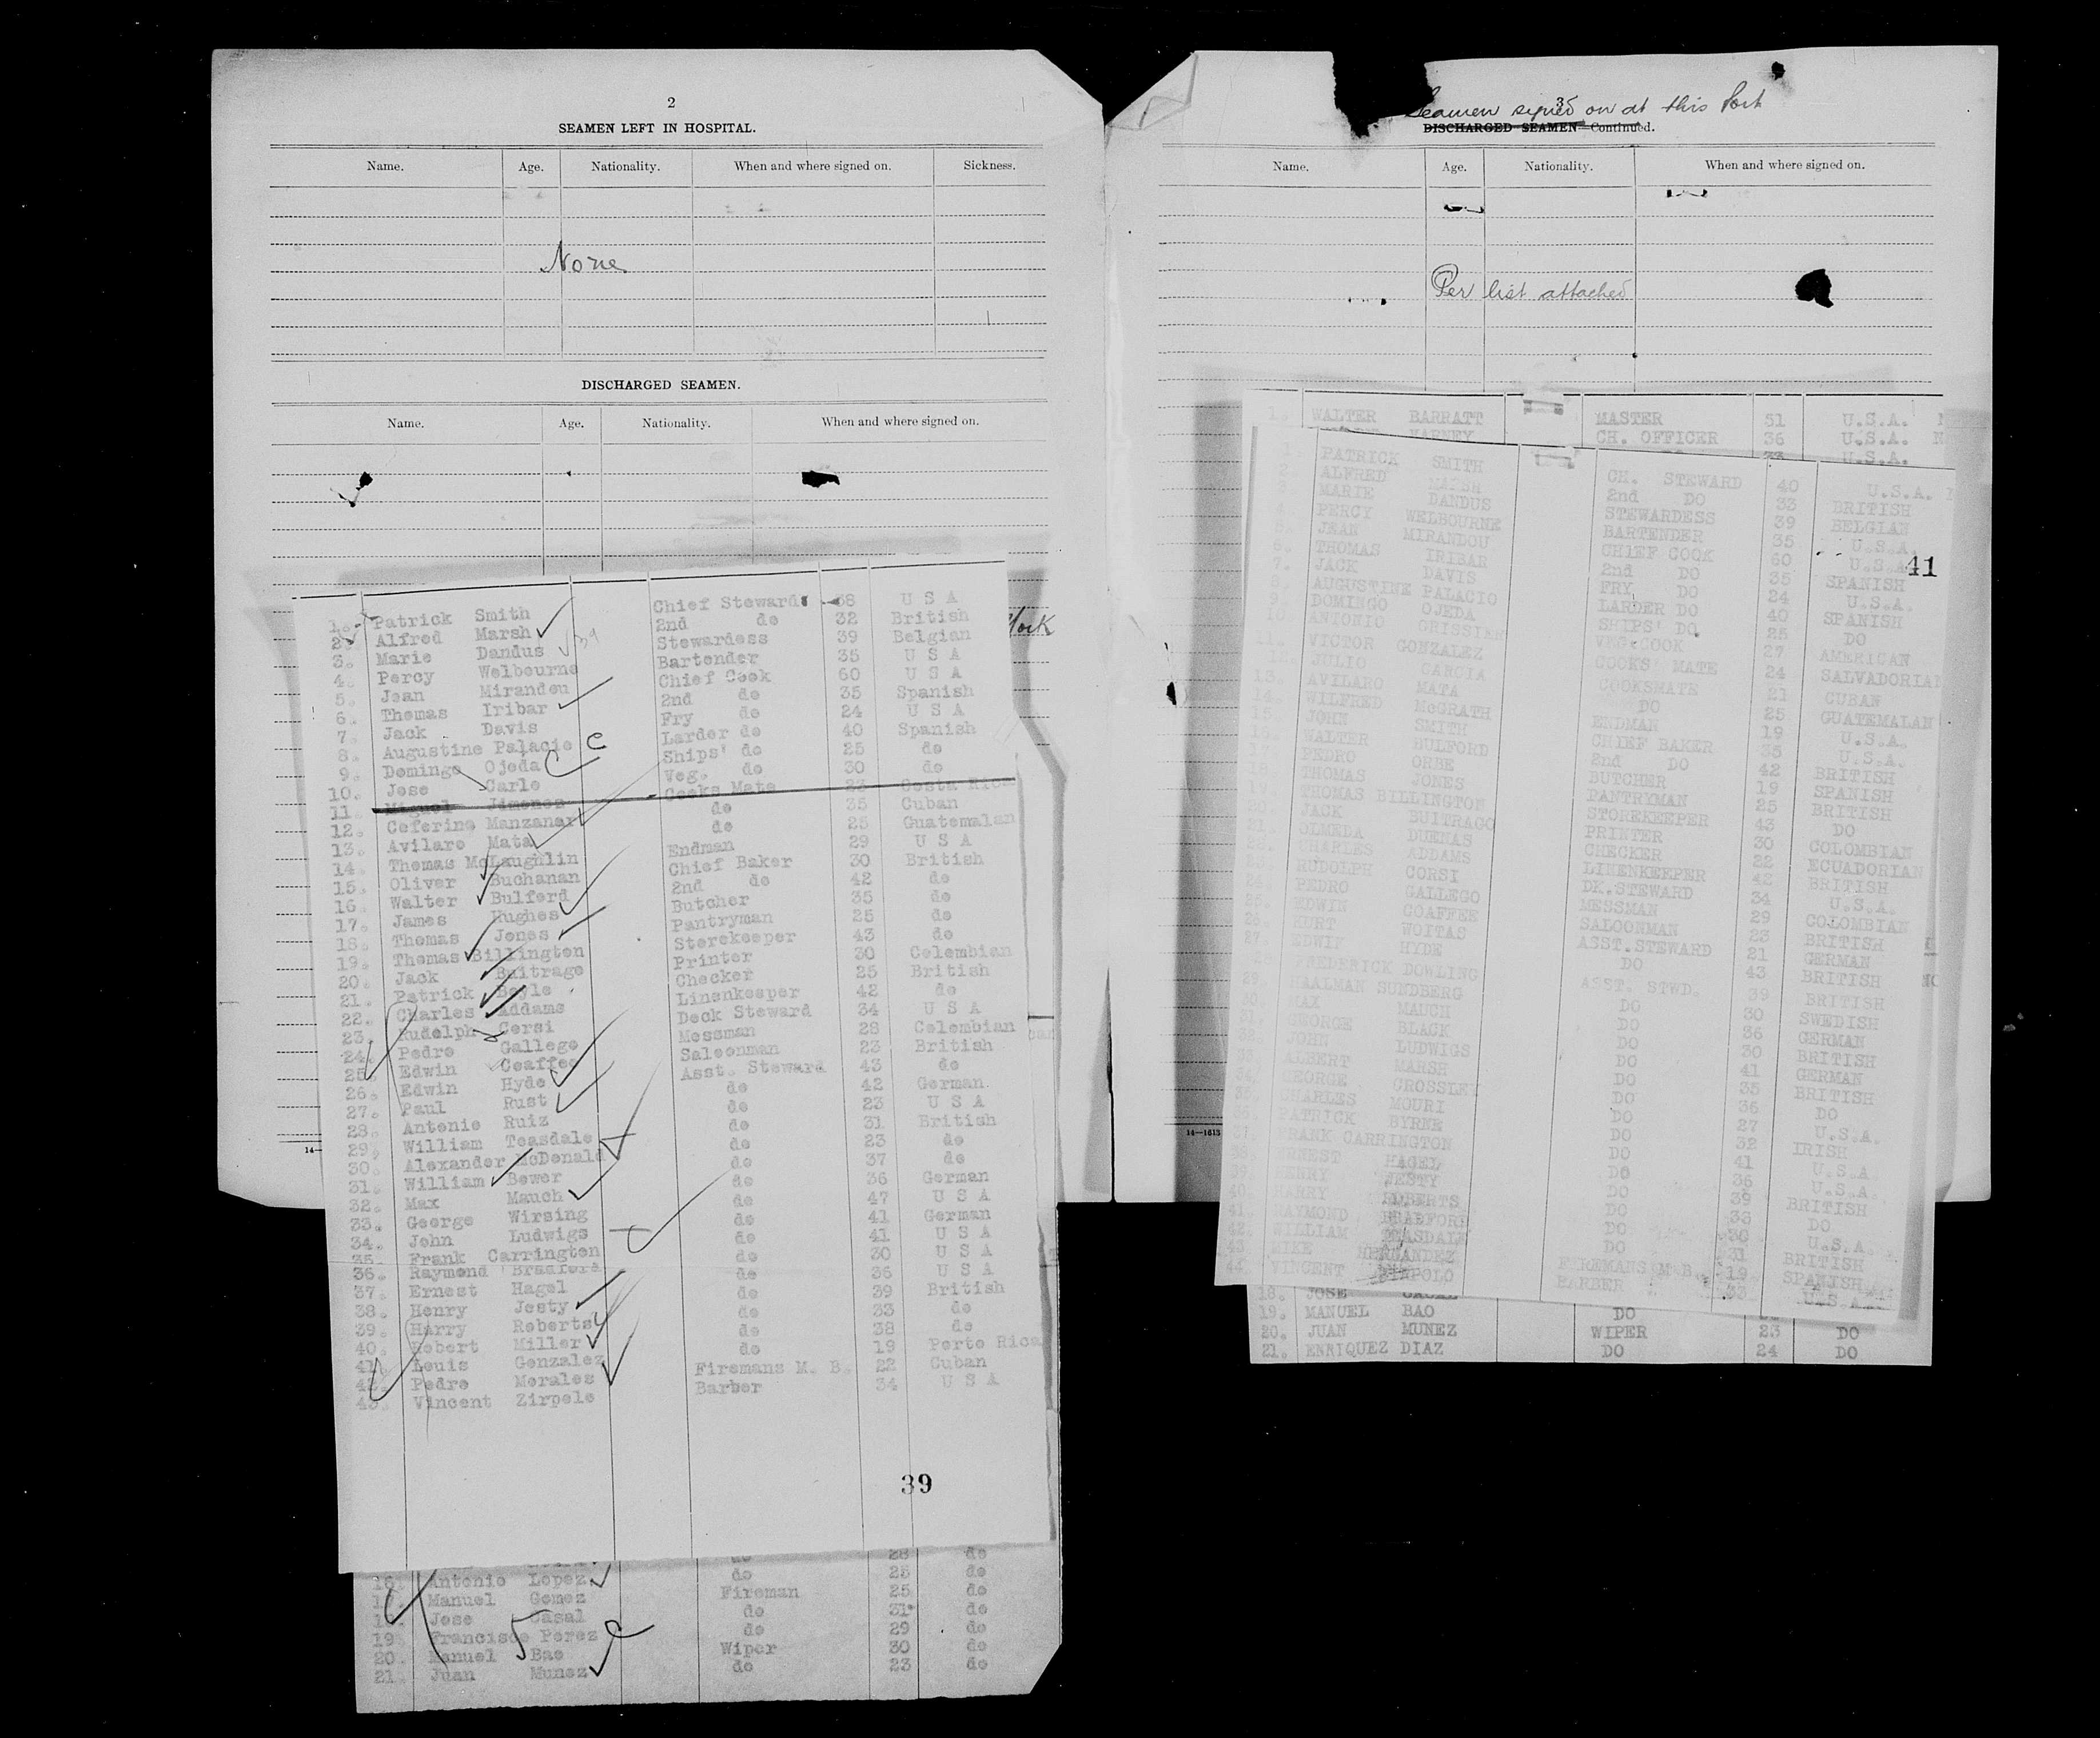 2
SEAMEN LEFT IN HOSPITAL.
Name. Age. Nationality. When and where signed on. Sickness.
None
DISCHARGED SEAMEN.
Name. Age. Nationality. When and where signed on.
York
1. Patrick Smith Chief Steward 38 U S A
2. Alfred Marsh 2nd do 32 British
3. Marie Dandus Stewardess 39 Belgian
4. Percy Welbourne Bartender 35 U S A
5. Jean Mirandou Chief Cook 60 U S A
6. Thomas Iribar 2nd do 35 Spanish
7. Jack Davis Fry do 24 U S A
8. Augustine Palacio Larder do 40 Spanish
9. Domingo Ojeda Ships' do 25 do
10. Jose Carlo Veg. do 30 do
11. Miguel Jimenez Cooks Mate 23 Costa Rica
12. Ceferino Manzanar do 35 Cuban
13. Avilaro Mata do 25 Guatemalan
14. Thomas McLaughlin Endman 29 U S A
15. Oliver Buchanan Chief Baker 30 British
16. Walter Bulford 2nd do 42 do
17. James Hughes Butcher 35 do
18. Thomas Jones Pantryman 25 do
19. Thomas Billington Storekeeper 43 do
20. Jack Buitrago Printer 30 Colombian
21. Patrick Boyle Checker 25 British
22. Charles Addams Linenkeeper 42 do
23. Rudolph Corsi Deck Steward 34 U S A
24. Pedro Gallego Messman 28 Colombian
25. Edwin Coaffee Saloonman 23 British
26. Edwin Hyde Asst. Steward 43 do
27. Paul Rust do 42 German
28. Antonio Ruiz do 23 U S A
29. William Teasdale do 31 British
30. Alexander McDonald do 23 do
31. William Bower do 37 do
32. Max Mauch do 36 German
33. George Wirsing do 47 U S A
34. John Ludwigs do 41 German
35. Frank Carrington do 41 U S A
36. Raymond Bradford do 30 U S A
37. Ernest Hagel do 36 U S A
38. Henry Jesty do 39 British
39. Harry Roberts do 33 do
40. Robert Miller do 38 do
41. Louis Gonzalez do 19 Porto Rica
42. Pedro Morales Firemans M. B. 22 Cuban
43. Vincent Zirpolo Barber 34 U S A
39
16. Antonio Lopez do 25 do
17. Manuel Gomez Fireman 25 do
18. Jose Casal do 31 do
19 Francisco Perez do 29 do
20. Manuel Bao Wiper 30 do
21 Juan Munez do 23 do
3
Seamen signed on at this Port
DISCHARGED SEAMEN—Continued.
Name. Age. Nationality. When and where signed on.
Per list attached
1. WALTER BARRATT MASTER 51 U.S.A.
VARNEY CH. OFFICER 36 U.S.A.
33 U.S.A.
1. PATRICK SMITH CH. STEWARD 40 U.S.A.
2. ALFRED MARSH 2nd DO 33 BRITISH
3. MARIE DANDUS STEWARDESS 39 BELGIAN
4. PERCY WELBOURNE BARTENDER 35 U.S.A.
5. JEAN MIRANDOU CHIEF COOK 60 U.S.A.
41
6. THOMAS IRIBAR 2nd DO 35 SPANISH
7. JACK DAVIS FRY DO 24 U.S.A.
8. AUGUSTINE PALACIO LARDER DO 40 SPANISH
9. DOMINGO OJEDA SHIPS' DO 25 DO
10. ANTONIO GRISSIEN VEG. COOK 27 AMERICAN
11. VICTOR GONZALEZ COOKS MATE 24 SALVADORIAN
12. JULIO GARCIA COOKSMATE 21 CUBAN
13. AVILARO MATA DO 25 GUATEMALAN
14. WILFRED McGRATH ENDMAN 19 U.S.A.
15. JOHN SMITH CHIEF BAKER 35 U.S.A.
16. WALTER BULFORD 2nd DO 42 BRITISH
PEDRO ORBE BUTCHER 19 SPANISH
18. THOMAS JONES PANTRYMAN 25 BRITISH
19. THOMAS BILLINGTON STOREKEEPER 43 DO
JACK BUITRAGO PRINTER 30 COLOMBIAN
21. OLMEDA DUENAS CHECKER 22 ECUADORIAN
22. CHARLES ADDAMS LINENKEEPER 42 BRITISH
RUDOLPH CORSI DK.STEWARD 34 U.S.A.
24. PEDRO GALLEGO MESSMAN 29 COLOMBIAN
25. EDWIN COAFFEE SALOONMAN 23 BRITISH
26 KURT WOITAS ASST.STEWARD 21 GERMAN
27. EDWIN HYDE DO 43 BRITISH
FREDERICK DOWLING ASST. STWD. 39 BRITISH
29 HAALMAN SUNDBERG DO 30 SWEDISH
30. MAX MAUCH DO 36 GERMAN
31. GEORGE BLACK DO 30 BRITISH
32. JOHN LUDWIGS DO 41 GERMAN
ALBERT MARSH DO 35 BRITISH
34. GEORGE CROSSLEY DO 36 DO
35. CHARLES MOURI DO 27 U.S.A.
PATRICK BYRNE DO 32 IRISH
37 FRANK CARRINGTON DO 41 U.S.A
38. ERNEST HAGEL DO 36 U.S.A
39. HENRY JESTY DO 39 BRITISH
40. HARRY ROBERTS DO 33 DO
41. RAYMOND BRADFORD DO 30 U.S.A.
42. WILLIAM TEASDALE DO 31 BRITISH
43 MIKE HERNANDEZ FIREMANS M B. 19 SPANISH
44. VINCENT ZIRPOLO BARBER 33 U.S.A.
18. JOSE
19. MANUEL BAO DO
20. JUAN MUNEZ WIPER 23 DO
21. ENRIQUEZ DIAZ DO 24 DO
14—1613